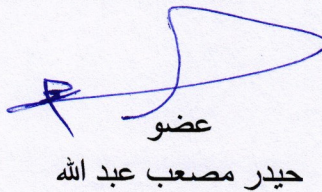 عضو
حيدر مصعب عبد الله